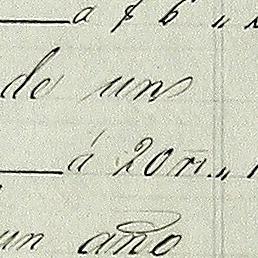 a $ 6 "
de uns
á 20 m. "
un año